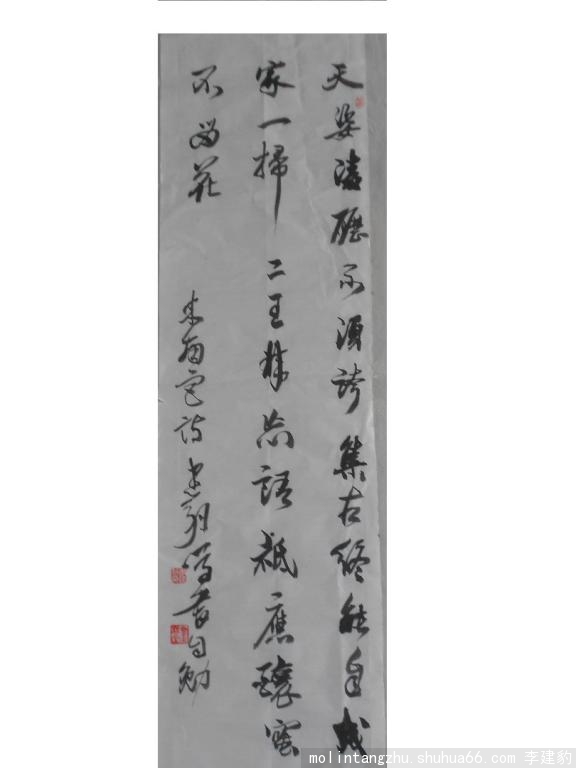 天姿凌不須誇集古終能自成
家一掃二王非妄語祇應釀蜜
不留花
詩書自勉
molintangzhu.shuhua66.com 李建豹